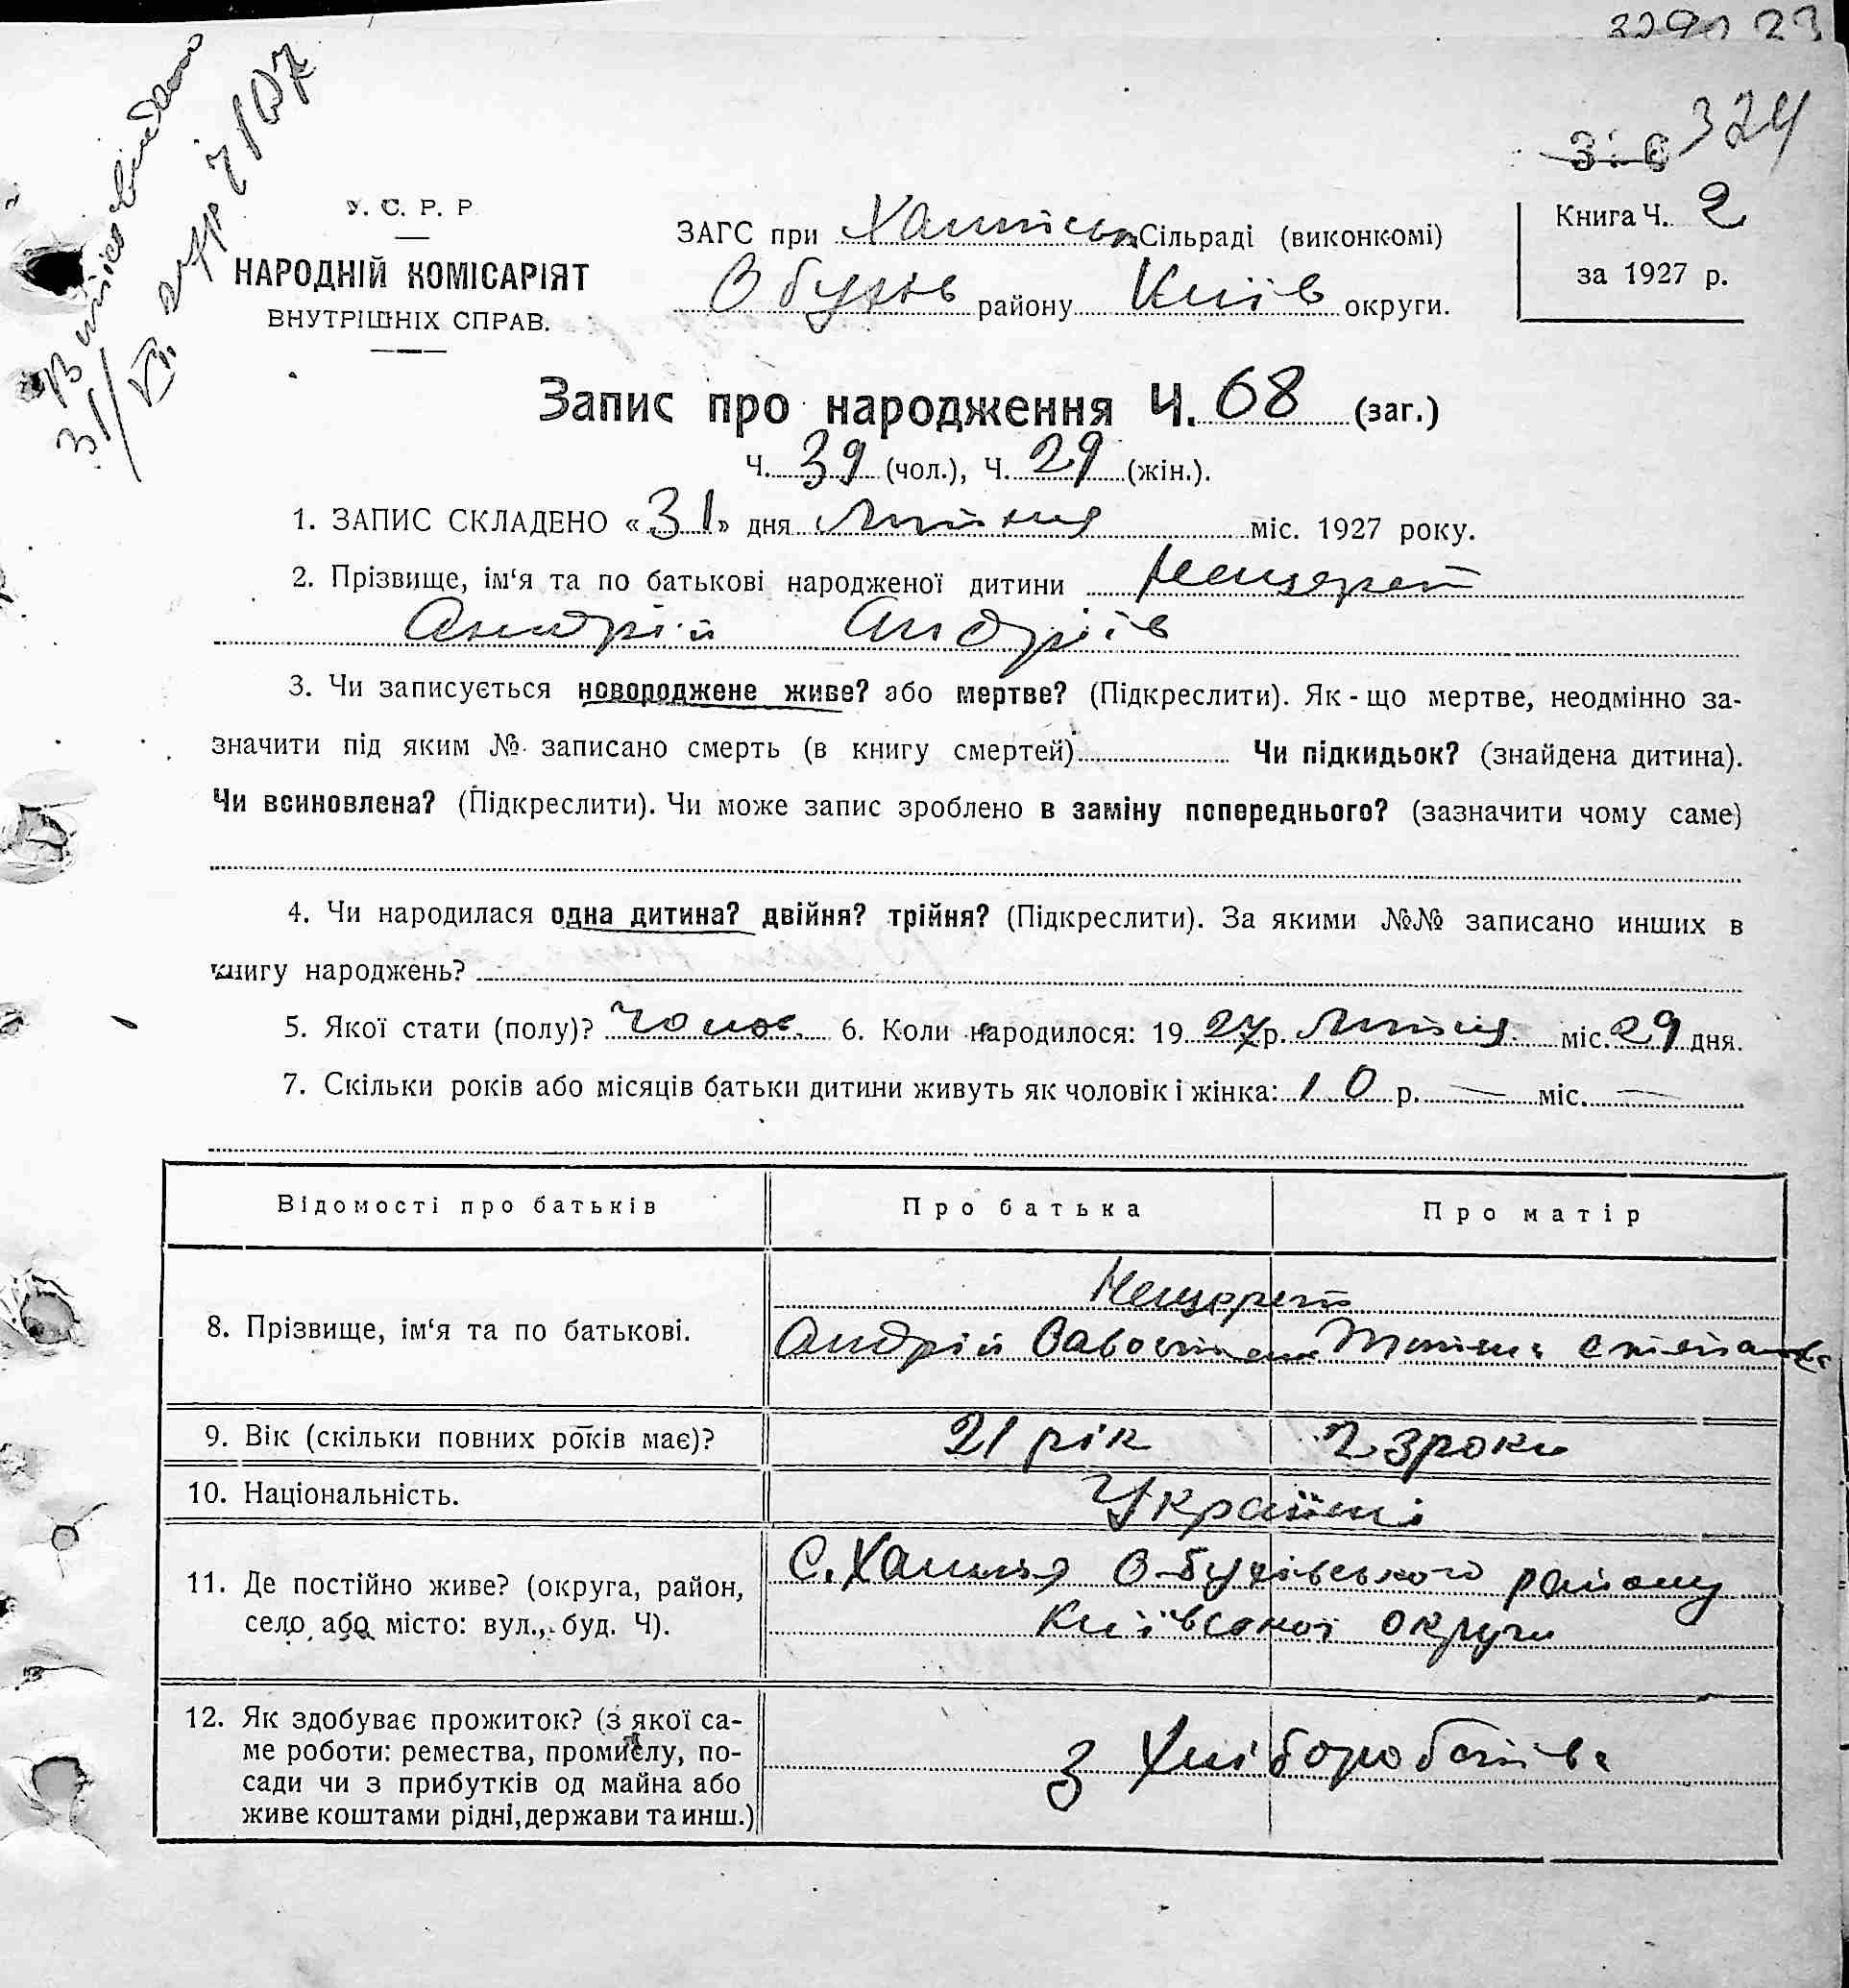 324
У. С. Р. Р
НАРОДНІЙ КОМІСАРІЯТ
ВНУТРІШНІХ СПРАВ.
ЗАГС при Сільраді (виконкомі)
Обухів району Київ округи.
Книга Ч. 2
за 1927 р.
Запис про народження Ч. 68 (заг.)
Ч. 39 (чол.), Ч. 29 (жін.).
1. ЗАПИС СКЛАДЕНО «31» дня Липня міс. 1927 року.
2. Прізвище, ім‘я та по батькові народженої дитини Нещерет
Андрій Андріїв
3. Чи записується новороджене живе? або мертве? (Підкреслити). Як-що мертве, неодмінно за-
значити під яким № записано смерть (в книгу смертей) Чи підкидьок? (знайдена дитина).
Чи всиновлена? (Підкреслити). Чи може запис зроблено в заміну попереднього? (зазначити чому саме)
4. Чи народилася одна дитина? двійня? трійня? (Підкреслити). За якими №№ записано инших в
книгу народжень?
5. Якої стати (полу)? Чолов. 6. Коли народилося: 1927 р. Липня міс. 29 дня.
7. Скільки років або місяців батьки дитини живуть як чоловік і жінка: 10 р. — міс. —
Відомості про батьків
Про батька
Про матір
8. Прізвище, ім‘я та по батькові.
Нещерет
Андрій
9. Вік (скільки повних років має)?
21 рік
23 роки
10. Національність.
Українці
11. Де постійно живе? (округа, район,
село або місто: вул., буд. Ч).
С. Халепья Обухівського району
Київської округи
12. Як здобуває прожиток? (з якої са-
ме роботи: ремества, промислу, по-
сади чи з прибутків од майна або
живе коштами рідні, держави та инш.)
З Хліборобства